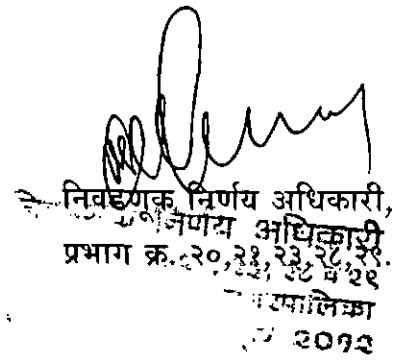 निवडणूक निर्णय अधिकारी,
निर्णय अधिकारी
प्रभाग क्र. २०,२१,२३,२८,२९.
२८ व २९
२०१२